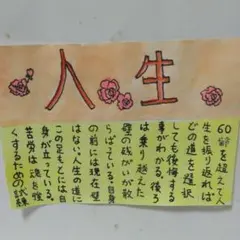 人生
60齢を超えて人
生を振り返れば
どの道を選択
しても後悔する
事がわかる。後ろ
は乗り越えた
壁の残がいが散
らばっている自身
の前には現在壁
はない人生の道に
この足もとには自
身が立っている。
苦労は魂を強
くするための試練